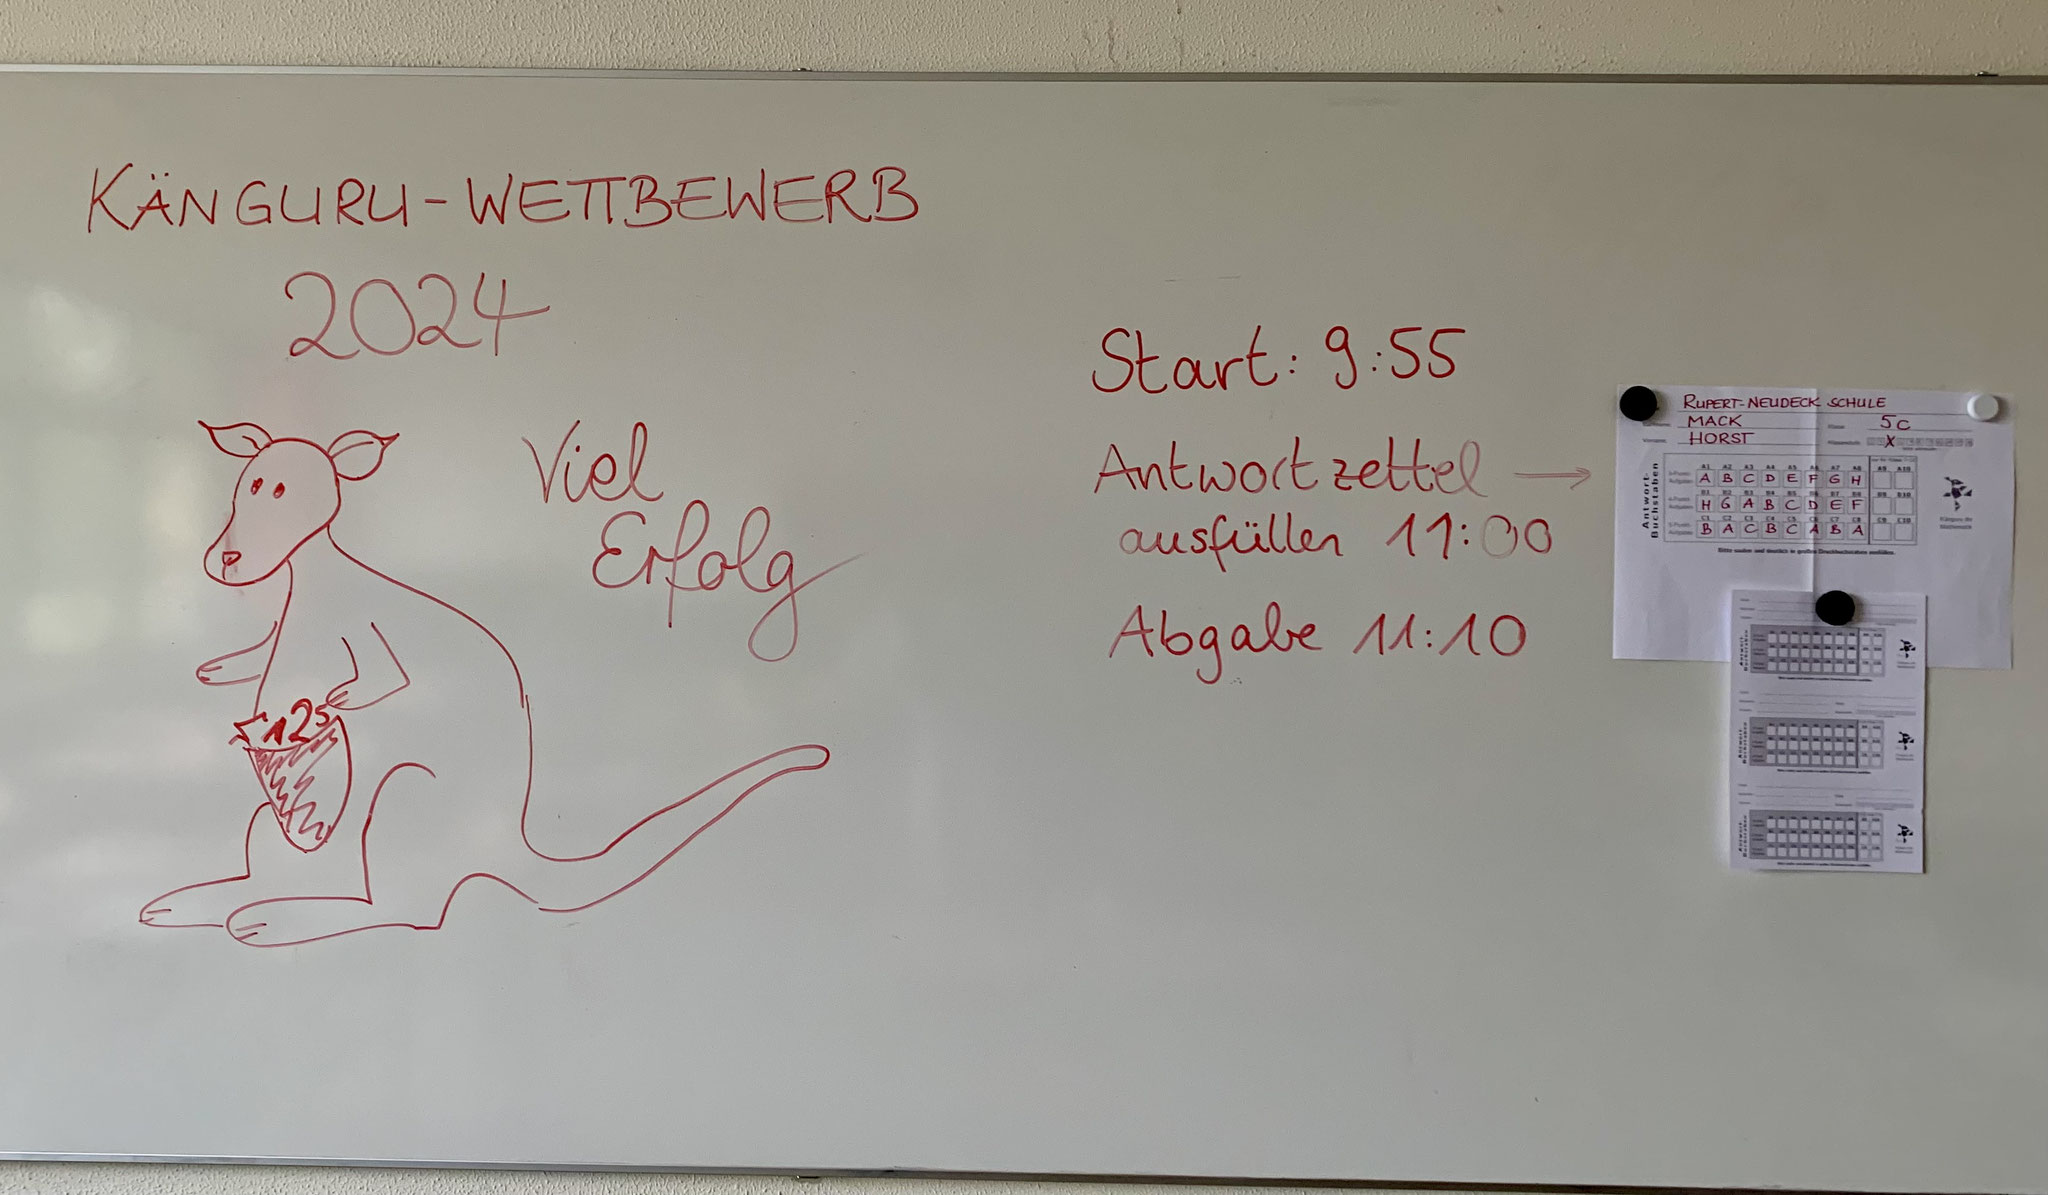 KÄNGURU-WETTBEWERB
2024
Viel
Erfolg
125
Start: 9:55
Antwortzettel →
ausfüllen 11:00
Abgabe 11:10
RUPERT-NEUDECK SCHULE
MACK Klasse 5C
Vorname HORST Klassenstufe X
Antwort-
Buchstaben
A1 A2 A3 A4 A5 A6 A7 A8 A9 A10
A B C D E F G H
B1 B2 B3 B4 B5 B6 B7 B8 B9 B10
H G A B C D E F
C1 C2 C3 C4 C5 C6 C7 C8 C9 C10
B A C B C A B A
Bitte sauber und deutlich in großen Druckbuchstaben ausfüllen.
Känguru der
Mathematik